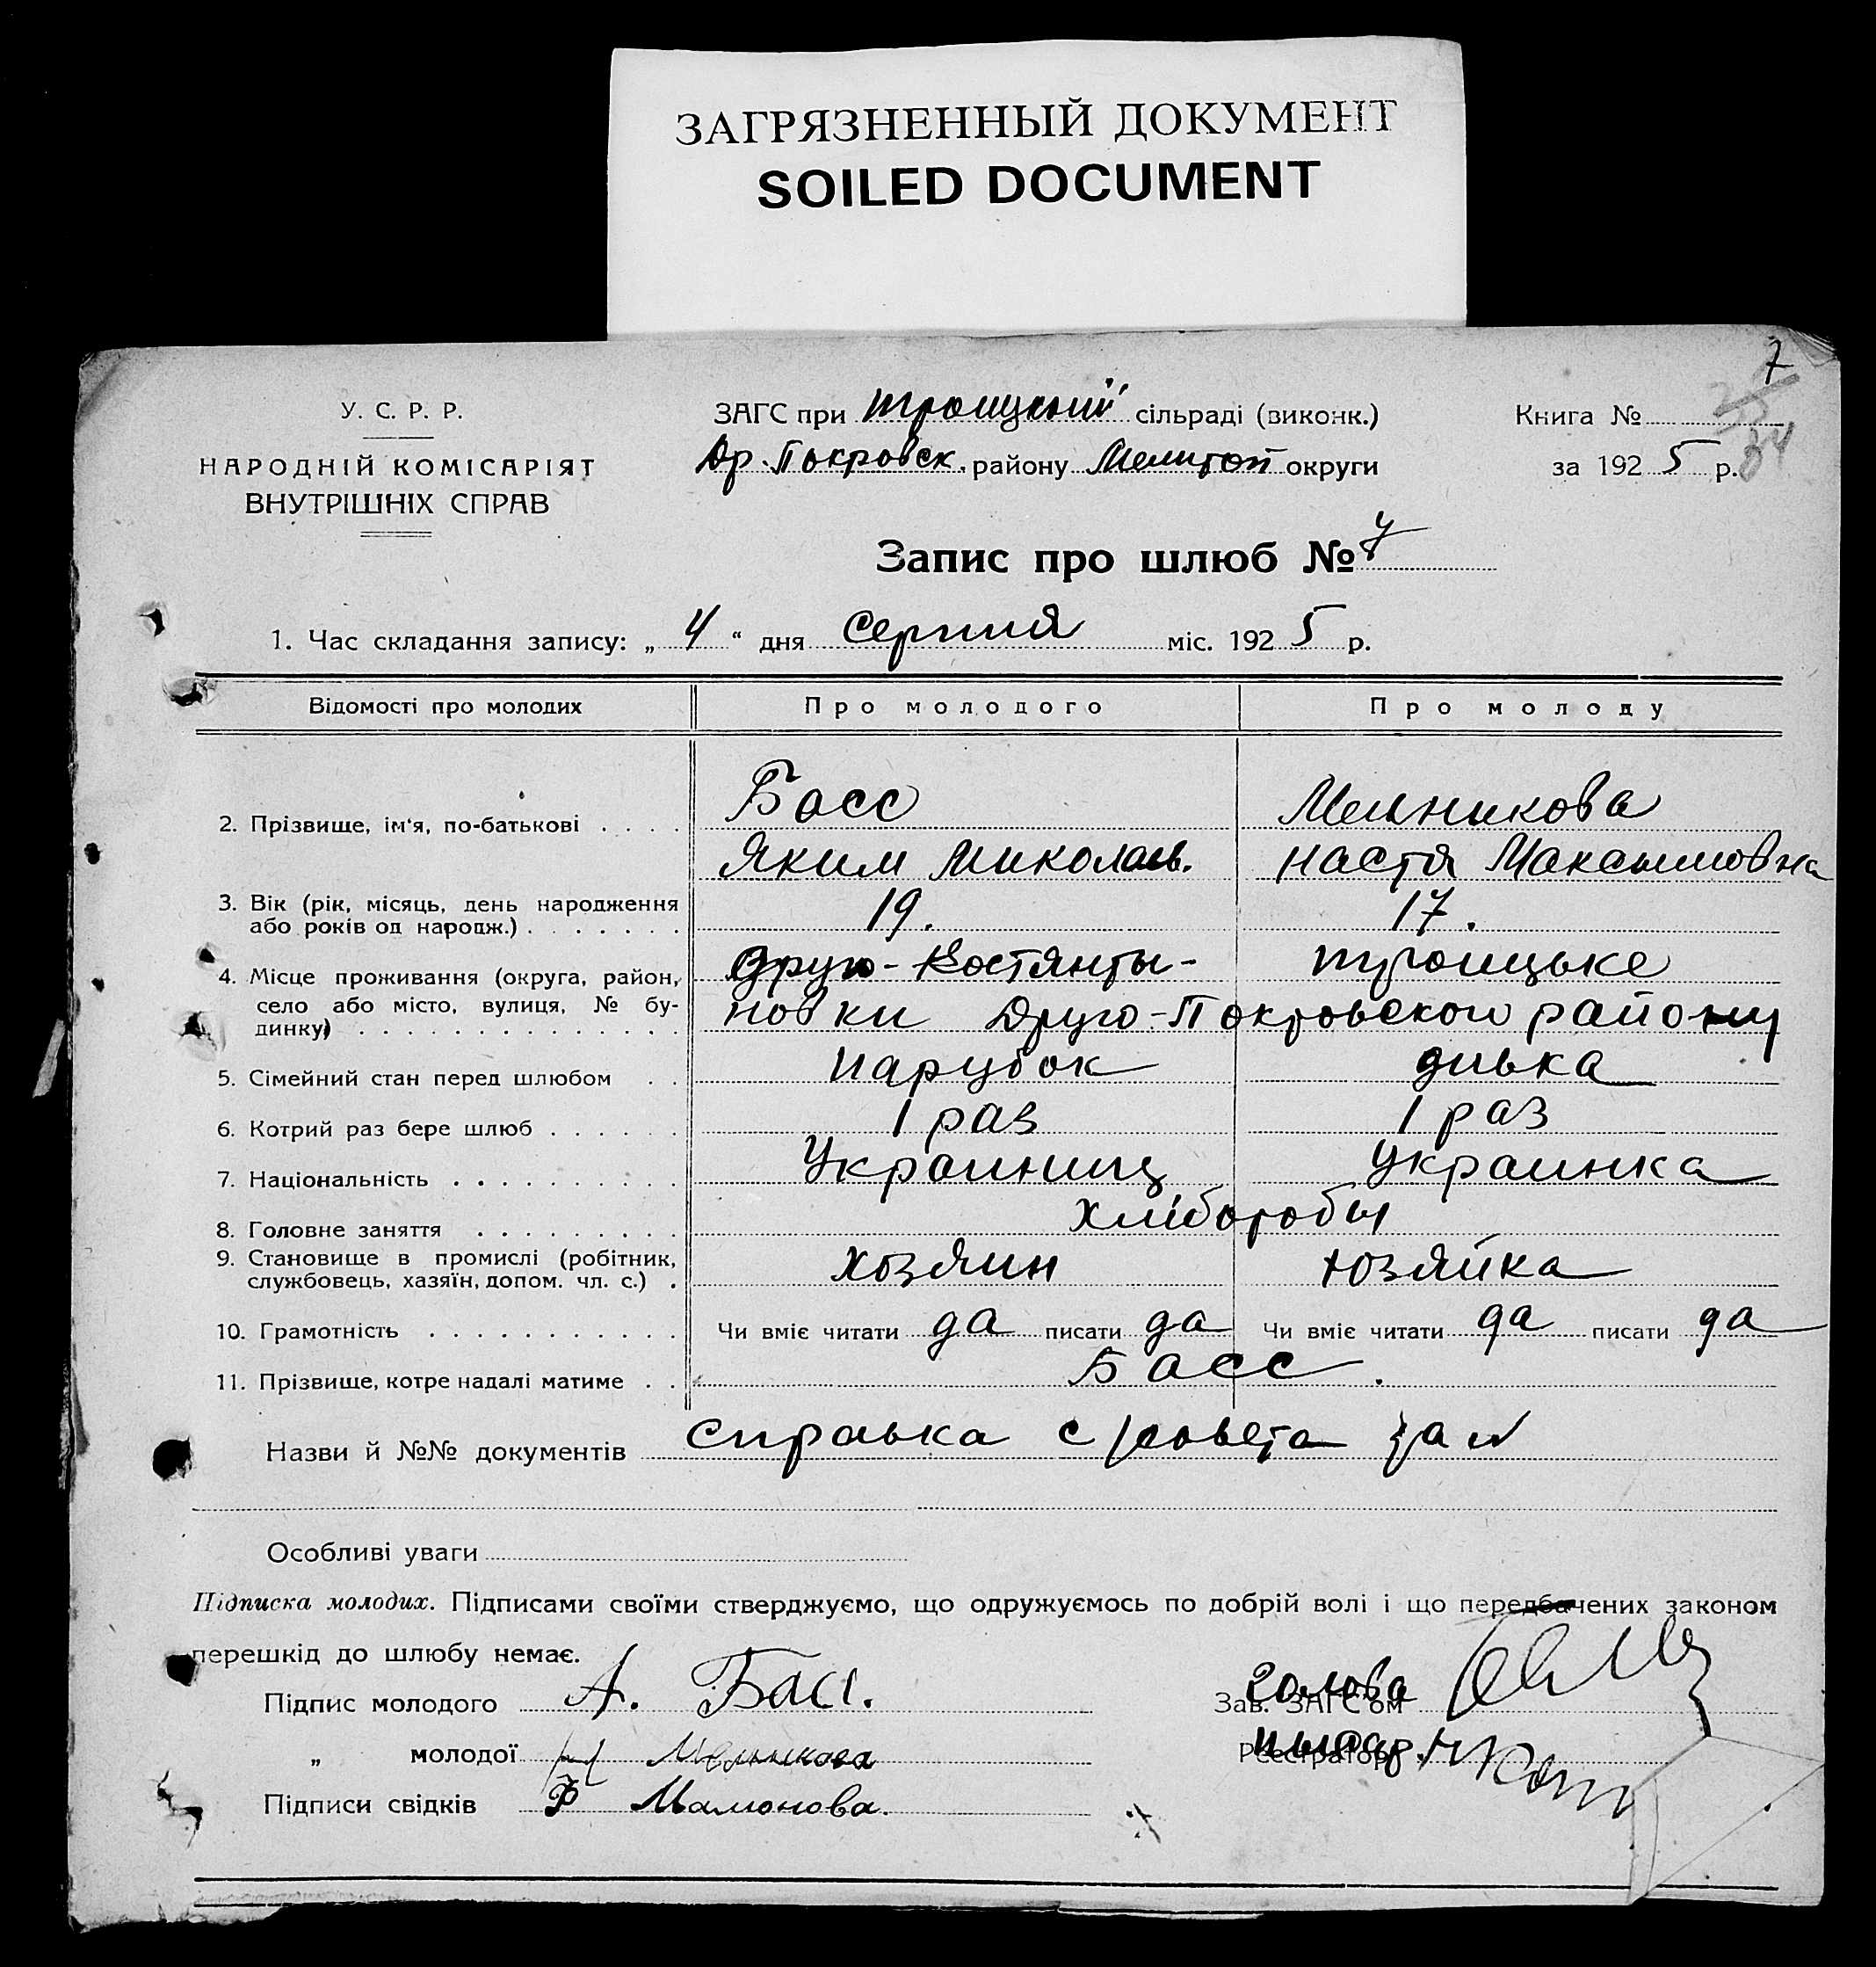 ЗАГРЯЗНЕННЫЙ ДОКУМЕНТ
SOILED DOCUMENT
7
34
У. С. Р. Р.
НАРОДНІЙ КОМІСАРІЯТ
ВНУТРІШНІХ СПРАВ
ЗАГС при Троицкий сільраді (виконк.)
Др. Покровск. району Мелитоп округи
Книга №
за 1925 р.
Запис про шлюб № 7
1. Час складання запису: „ 4 “ дня Серпня міс. 1925 р.
Відомості про молодих Про молодого Про молоду
2. Прізвище, ім'я, по-батькові . . . . Басс Мельникова
Яким Миколаєв. Настя Максымовна
3. Вік (рік, місяць, день народження
або років од народж.) . . . . . . . 19. 17.
4. Місце проживання (округа, район, Друго-Костянты- Троицьке
село або місто, вулиця, № бу-
динку) . . . . . . . . . . . . . . новки Друго-Покровского району
5. Сімейний стан перед шлюбом . . парубок дивка
6. Котрий раз бере шлюб . . . . . . 1 раз 1 раз
7. Національність . . . . . . . . . . Украиниц Украинка
8. Головне заняття . . . . . . . . . Хліборобы
9. Становище в промислі (робітник,
службовець, хазяїн, допом. чл. с.) . хозяин хозяйка
10. Грамотність . . . . . . . . . . . . Чи вміє читати да писати да Чи вміє читати да писати да
11. Прізвище, котре надалі матиме . . Басс.
Назви й №№ документів справка с/совета за №
Особливі уваги
Підписка молодих. Підписами своїми стверджуємо, що одружуємось по добрій волі і що передбачених законом
перешкід до шлюбу немає.
Підпис молодого А. Басс.
Голова
Зав. ЗАГС'ом
„ молодої Мельникова
Реєстратор
Підписи свідків Ф Мамонова.